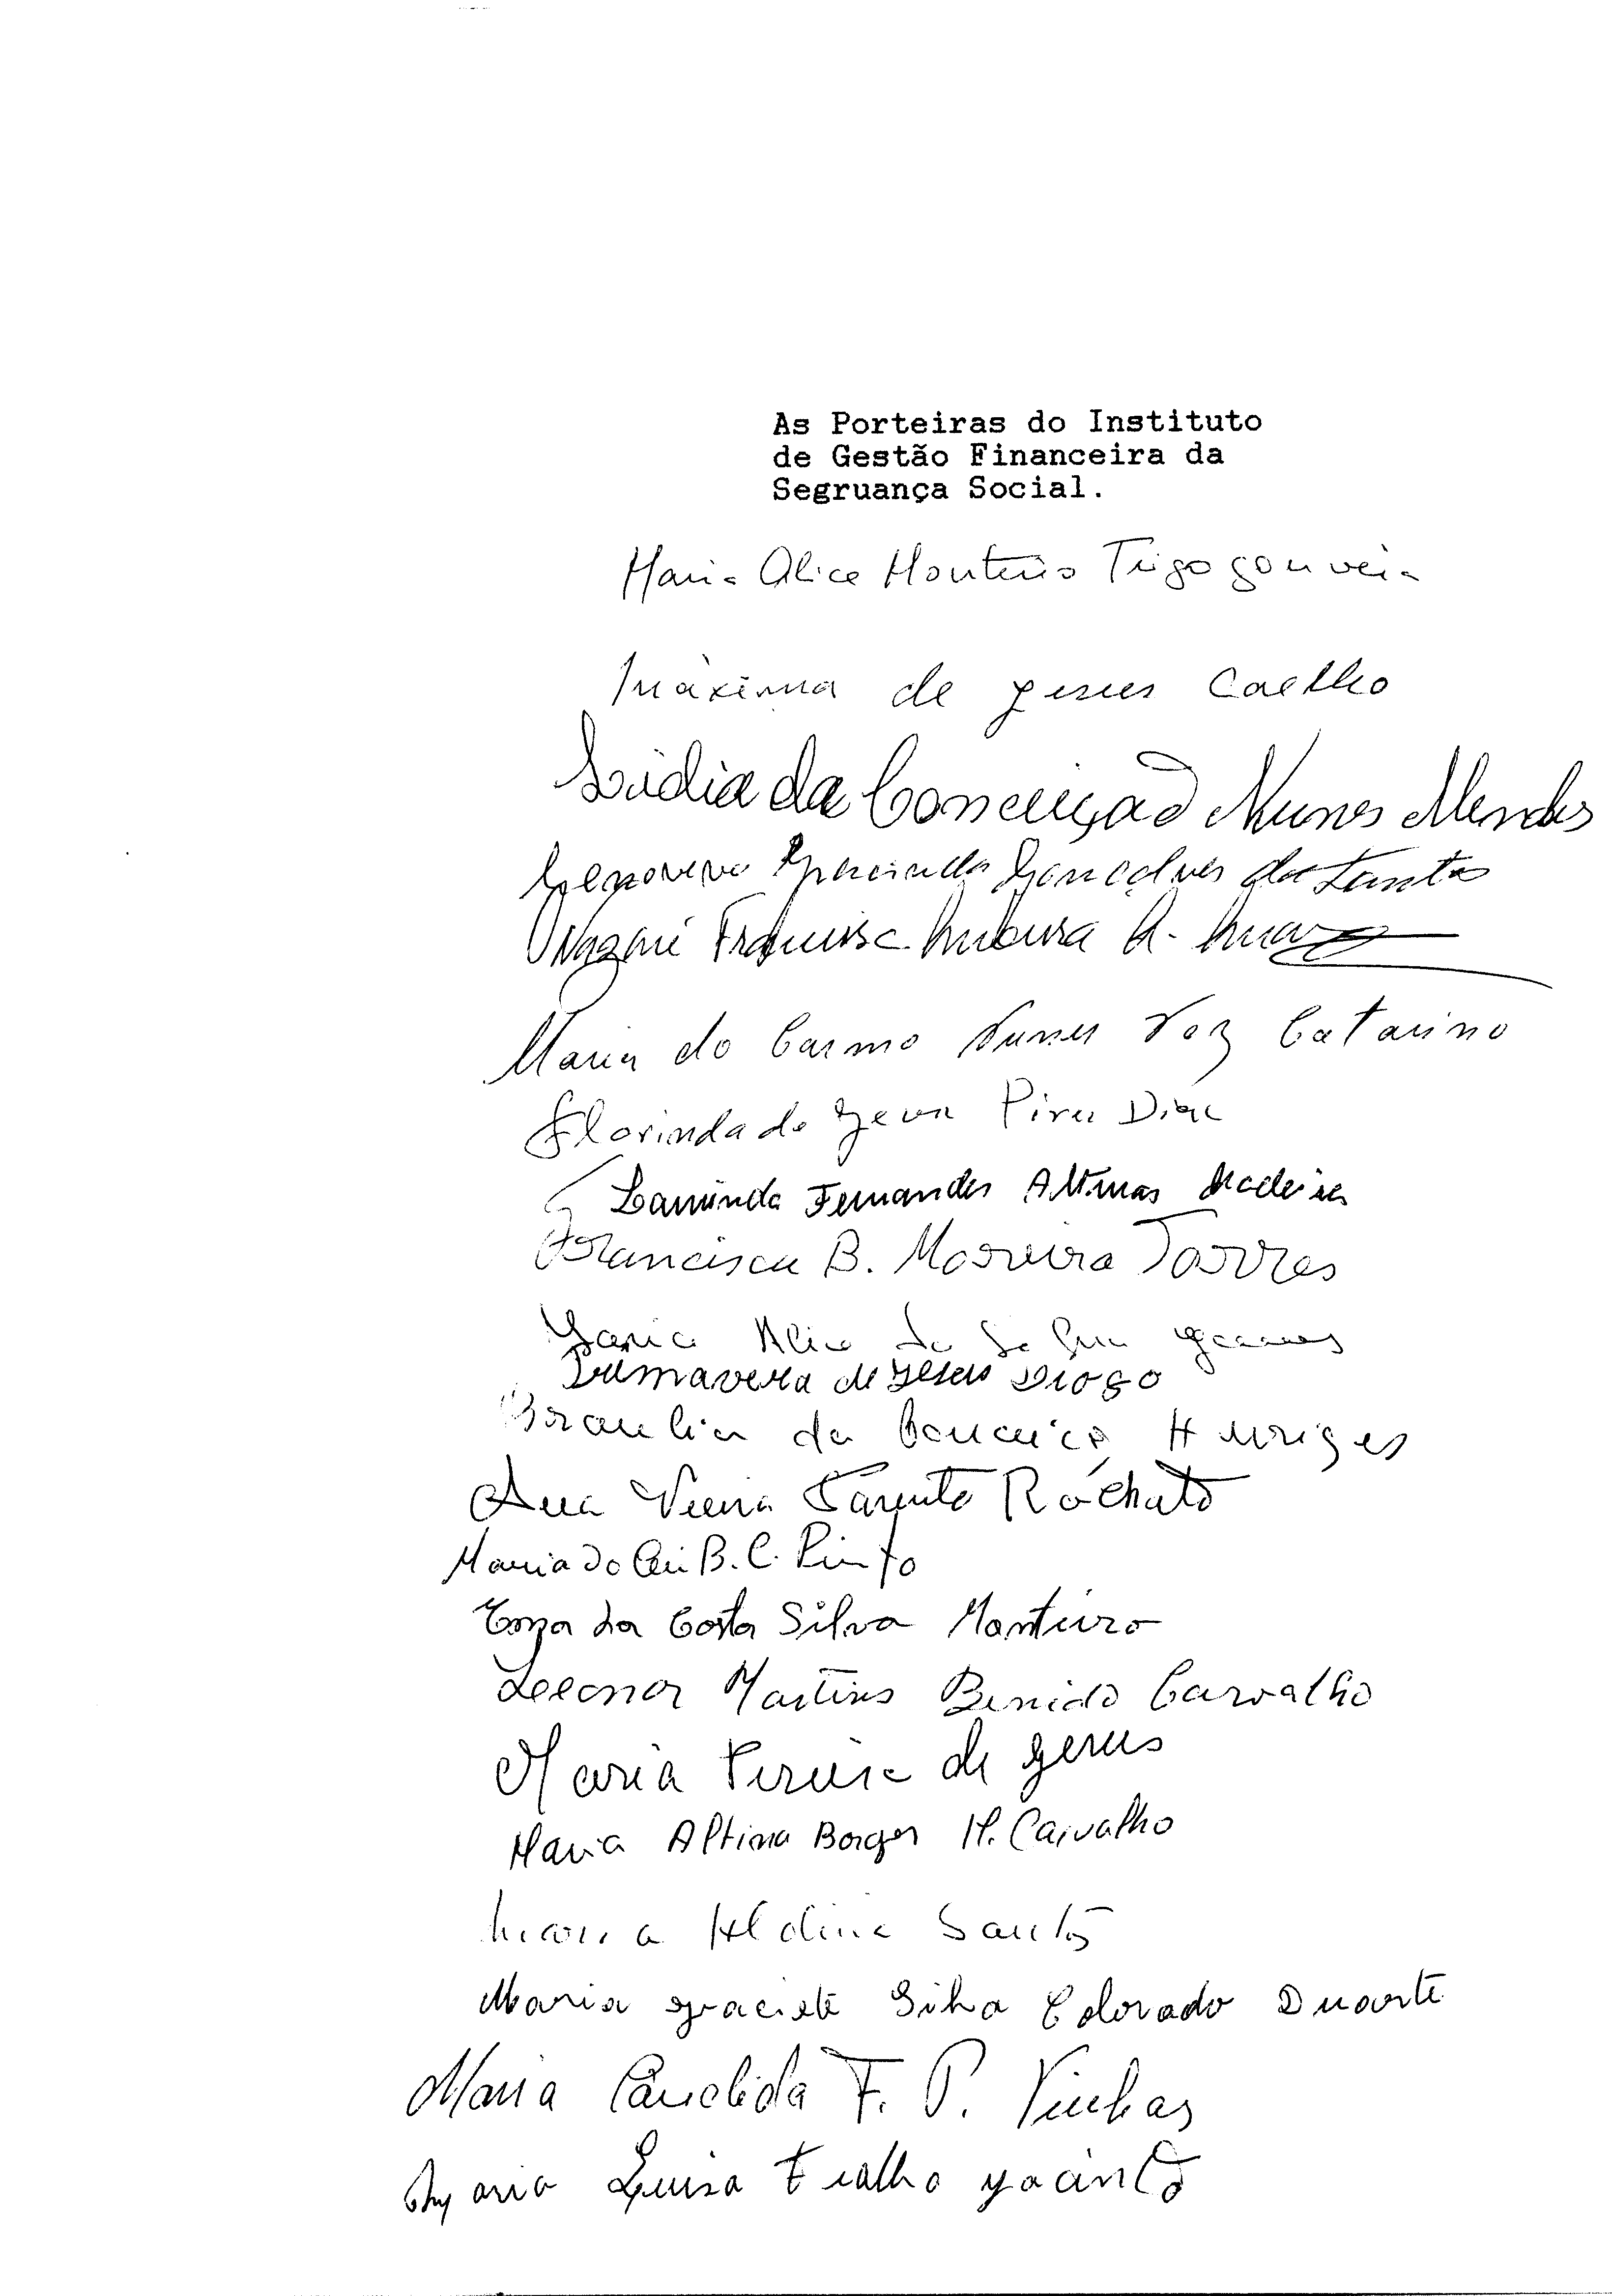 As Porteiras do Instituto
de Gestão Financeira da
Segruança Social.
Maria Alice Monteiro Trigo Gouveia
Màxima de Jesus Coelho
Lidia da Conceição Nunes Mendes
Gonçalves dos Santos
Maria do Carmo Nunes Vaz Catarino
Florinda de Jesus Pires Dias
Laurinda Fernandes Madeira
Francisca B. Moreira Torres
Maria Alice da
Primavera de Jesus Diogo
Braulia da Conceição
Ana Vieira Parente Rochato
Maria do Céu B. C. Pinto
da Costa Silva Monteiro
Leonor Martins Carvalho
Maria de Jesus
Maria Altina Borges M. Carvalho
Maria Aldina Santos
Maria Graciete Silva Colorado Duarte
Maria Candida F. P. Vinhas
Maria Luisa Fialho